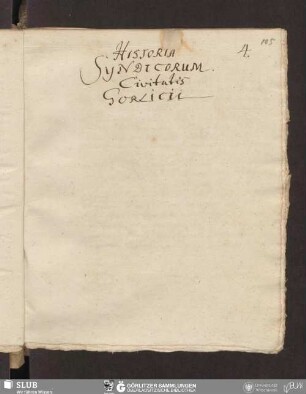 HISTORIA
SYNDICORUM.
Civitatis
GORLICII
4.
105
SLUB
Wir führen Wissen.
GÖRLITZER SAMMLUNGEN
OBERLAUSITZISCHE BIBLIOTHEK